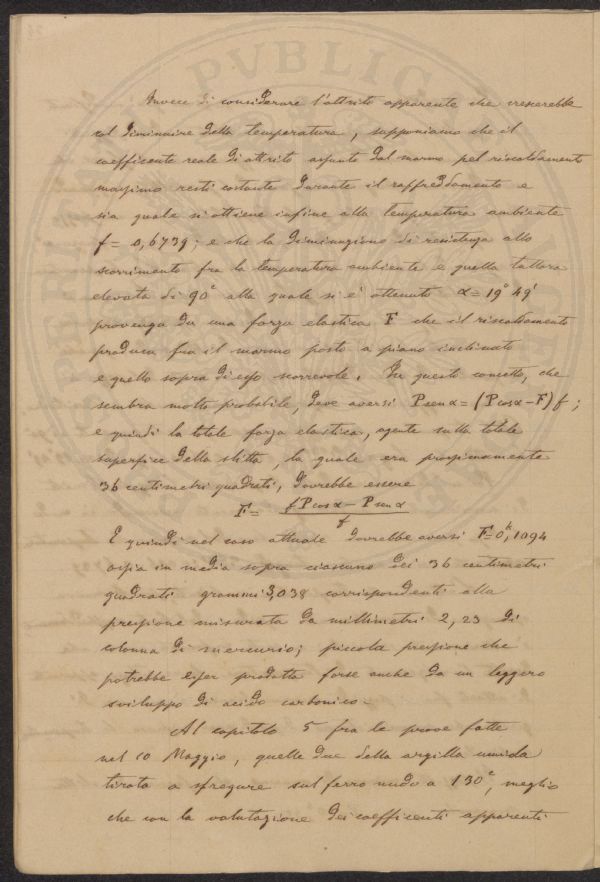 Invece di considerare l'attrito apparente che crescerebbe
col diminuire della temperatura, supponiamo che il
coefficente reale di attrito assunto dal marmo pel riscaldamento
massimo resti costante durante il raffreddamento e
sia quale si ottiene infine alla temperatura ambiente
f = 0,6739; e che la diminuzione di resistenza allo
scorrimento fra la temperatura ambiente e quella tuttora
elevata di 90° alla quale si è ottenuto α = 19° 49'
provenga da una forza elastica F che il riscaldamento
produca fra il marmo posto a piano inclinato
e quello sopra di esso scorrevole. In questo concetto, che
sembra molto probabile, deve aversi P sen α = (P cos α - F) f;
e quindi la totale forza elastica, agente sulla totale
superfice della slitta, la quale era prossimamente
36 centimetri quadrati, dovrebbe essere
F = f P cos α - P sen α / f
E quindi nel caso attuale dovrebbe aversi F = 0k,1094
ossia in media sopra ciascuno dei 36 centimetri
quadrati grammi 3,038 corrispondenti alla
pressione misurata da millimetri 2,23 di
colonna di mercurio; piccola pressione che
potrebbe esser prodotta forse anche da un leggero
sviluppo di acido carbonico.
Al capitolo 5 fra le prove fatte
nel 10 Maggio, quelle due della argilla umida
tirata a sfregare sul ferro nudo a 130°, meglio
che con la valutazione dei coefficenti apparenti
PVBLIC